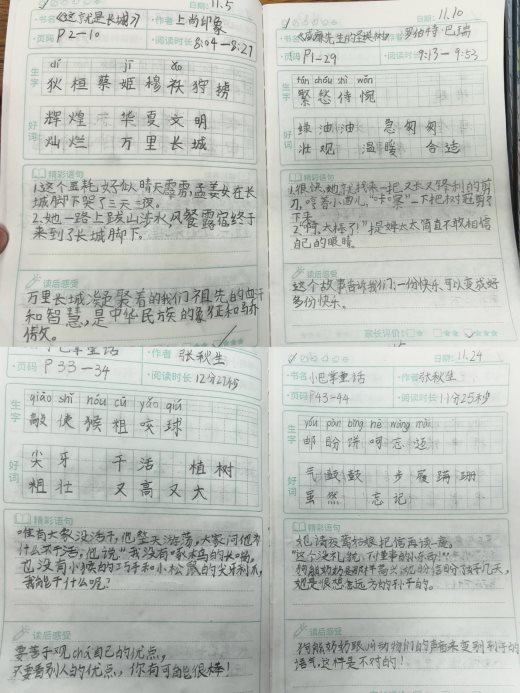 日期: 11.5
·书名《这就是长城》 ·作者 上尚印象
·页码 P2-10 ·阅读时长 8:04-8:27
生字
dí jī
狄 桓 蔡 姬 穆 袄 狩 掳
好词
辉煌 华夏文明
灿烂 万里长城
精彩语句
1.这个噩耗,好似晴天霹雳,孟姜女在长
城脚下哭了三天三夜。
2.她一路上跋山涉水,风餐露宿终于
来到了长城脚下。
读后感受
万里长城凝聚着的我们祖先的血汗
和智慧,是中华民族的象征和骄
傲。
日期: 11.10
·书名 作者 罗伯特·巴瑞
·页码 P1-29 ·阅读时长 9:13-9:53
生字
chóu shì wǎn
紧 愁 侍 惋
好词
绿油油 急匆匆
壮观 温暖 合适
精彩语句
1.很快,她就找来一把又长又锋利的剪
刀,哼着小曲儿,“咔嚓”一下把树冠剪了
下来。
2.“啊,太棒了!”提姆太太简直不敢相信
自己的眼睛。
读后感受
这个故事告诉我们:一份快乐,可以变成好
多份快乐。
家长评价:
小巴掌童话 ·作者 张秋生
·页码 P33-34 ·阅读时长 12分27秒
生字
qiāo shǐ hóu cū yǎo qiú
敲 使 猴 粗 咬 球
好词
尖牙 干活 植树
粗壮 又高又大
精彩语句
唯有大家没活干,他整天游荡,大家问他为
什么不干活,他说:“我没有啄木鸟的长嘴,
也没有小猴的巧手和小松鼠的尖牙利爪,
我能干什么呢?
读后感受
要善于观chá自己的优点,
不要看别人的优点,你有可能很棒!
日期: 11.24
·书名 小巴掌童话 ·作者 张秋生
·页码 P43-44 ·阅读时长 11分25秒
生字
yóu pàn bǐng hē wàng mài
邮 盼 饼 呵 忘 迈
好词
气鼓鼓 步履蹒跚
虽然 忘记
精彩语句
她请夜莺姑娘把信再读一遍。
“这个没礼貌、不懂事的小东西!”
读后感受
狗熊奶奶跟小动物们的声音来变别利子的
语气,这样是不对的!